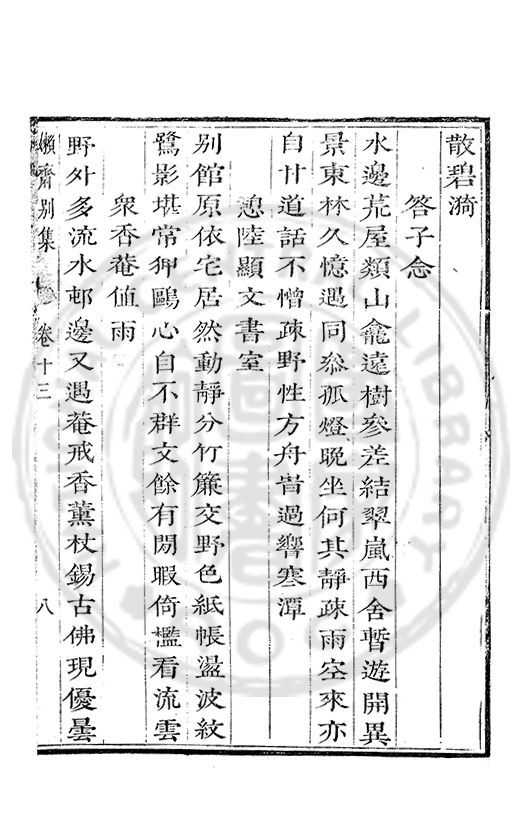 散碧漪
答子念
水邊荒屋類山龕遠樹參差結翠嵐西舍暫遊開異
景東林久憶過同叅孤燈晚坐何其靜疎雨空來亦
自甘道話不憎疎野性方舟當過響寒潭
憩陸顯文書室
別館原依宅居然動靜分竹簾交野色紙帳盪波紋
鷺影堪常狎鷗心自不群文餘有閒暇倚檻看流雲
衆香菴值雨
野外多流水邨邊又遇菴戒香薰杖錫古佛現優曇
嬾齋别集
卷十三
八